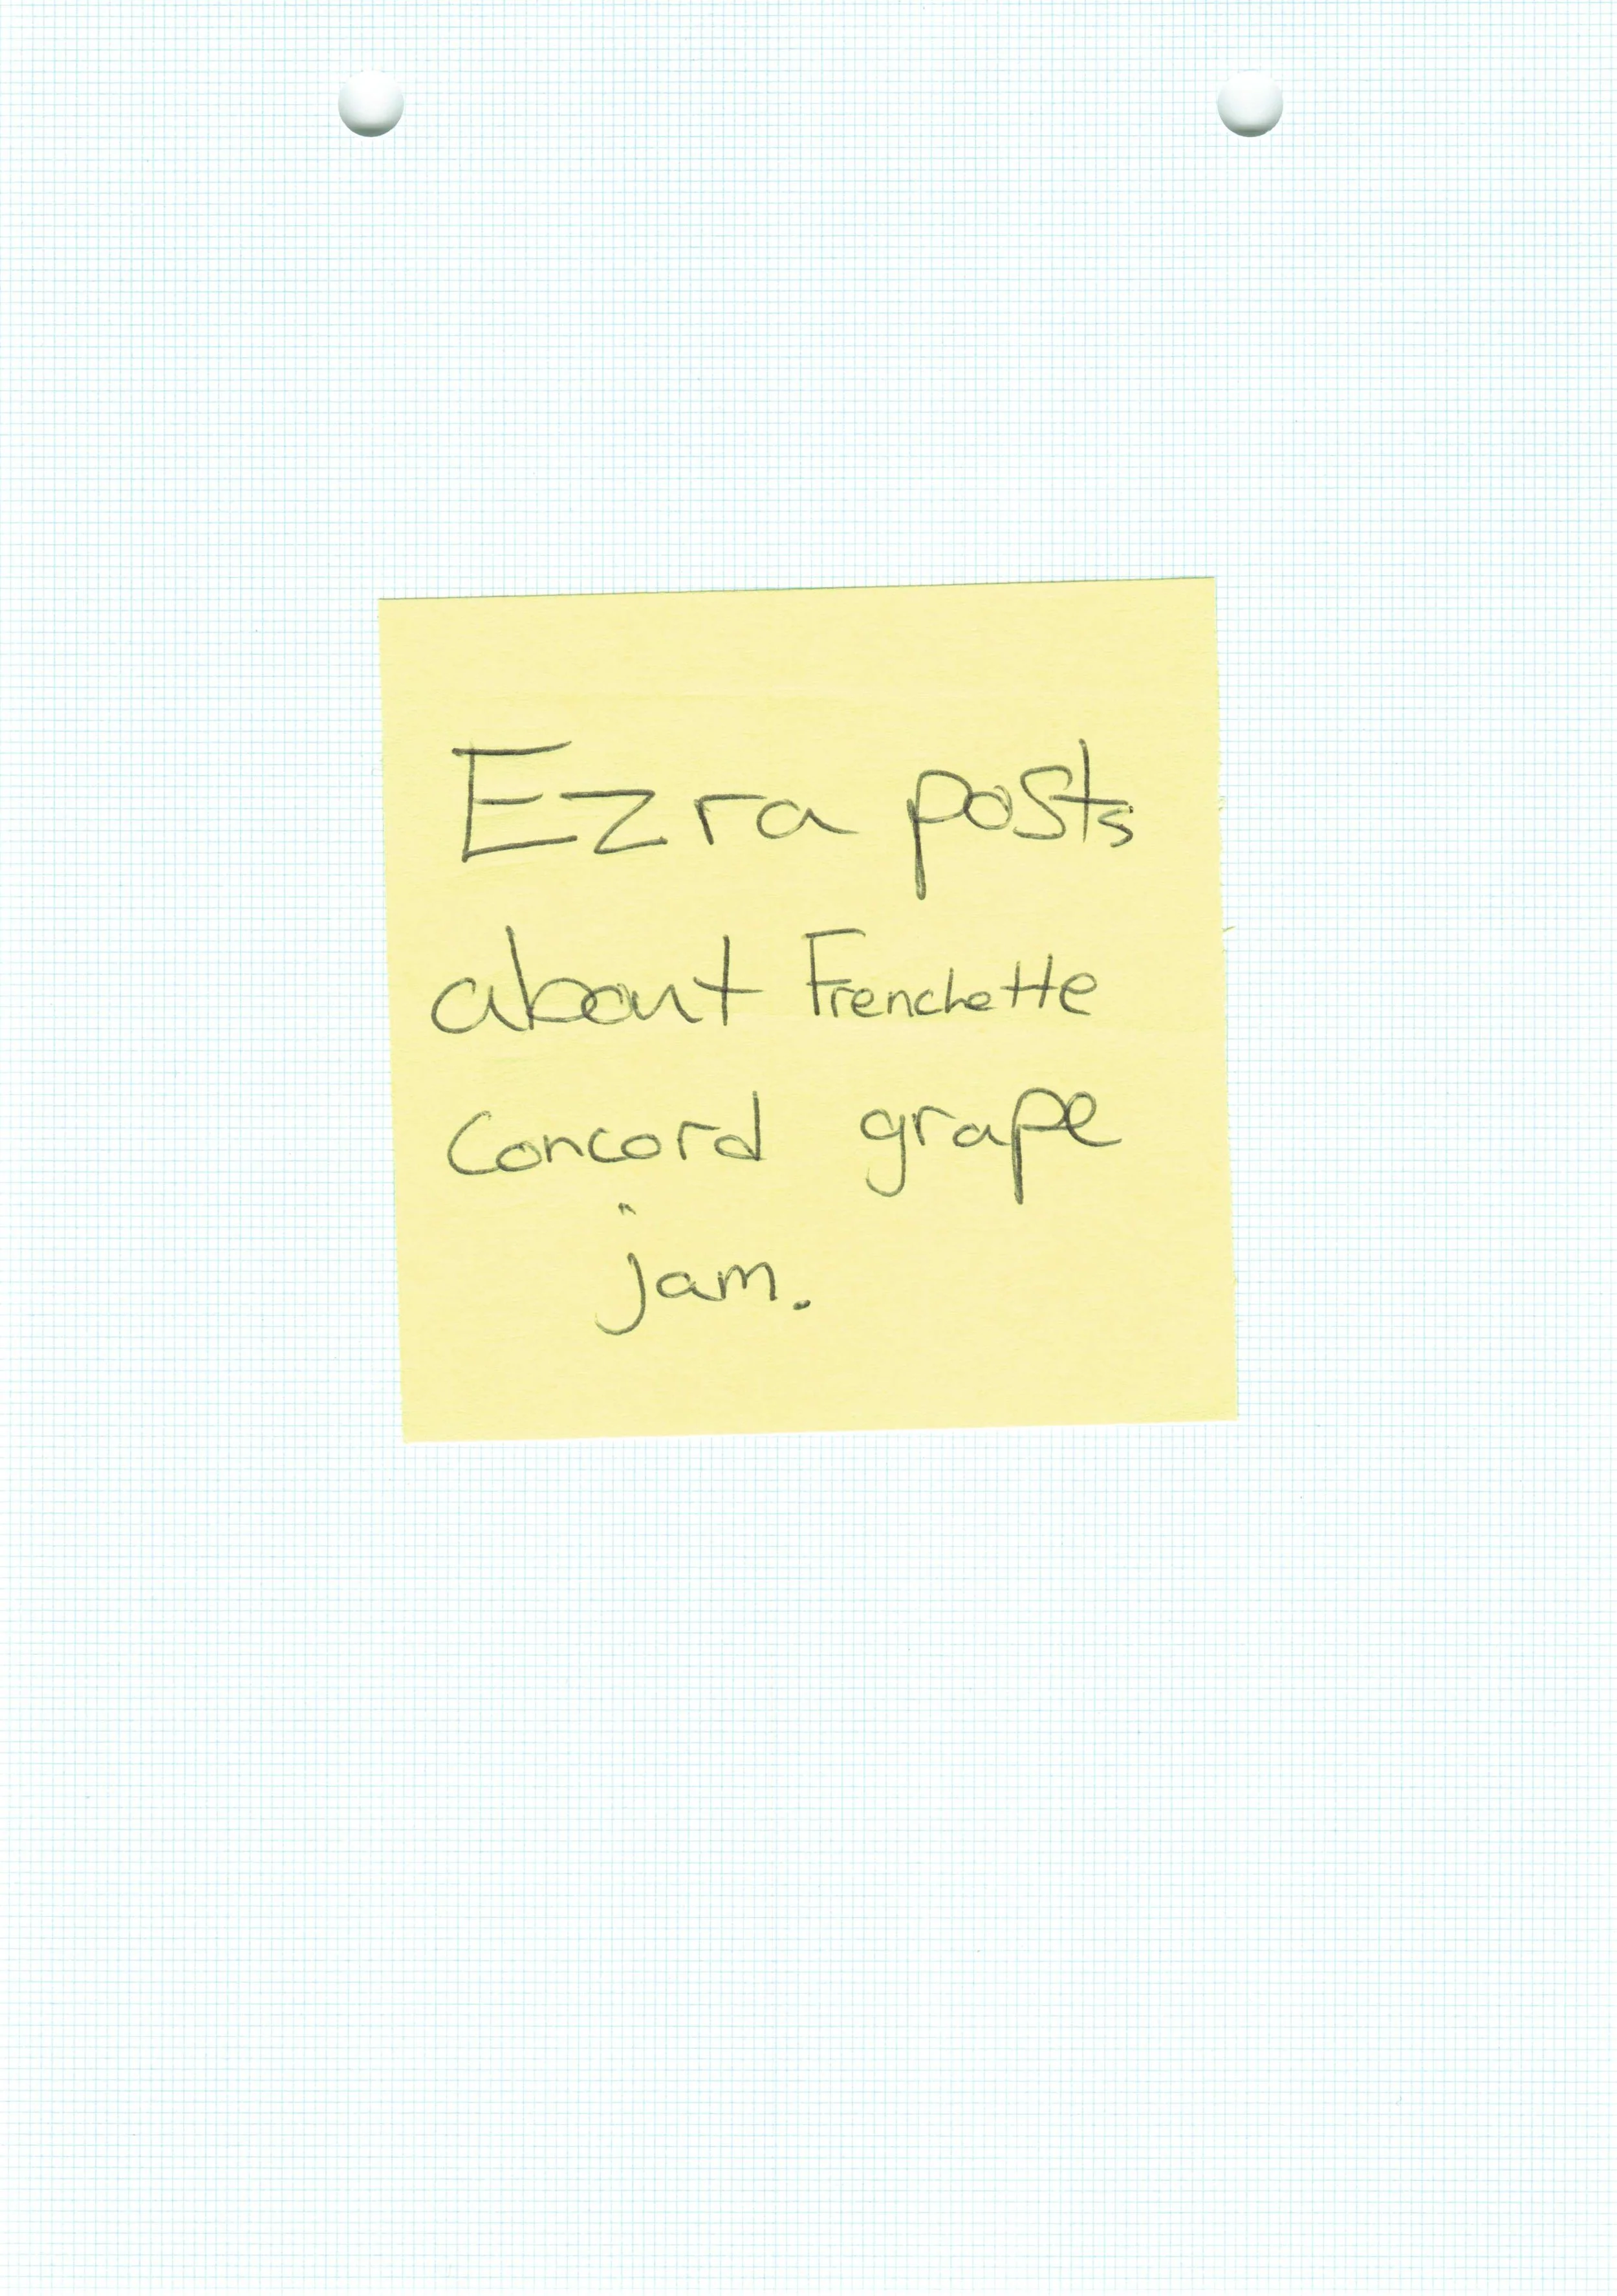 Ezra posts
about Frenchette
Concord grape
jam.